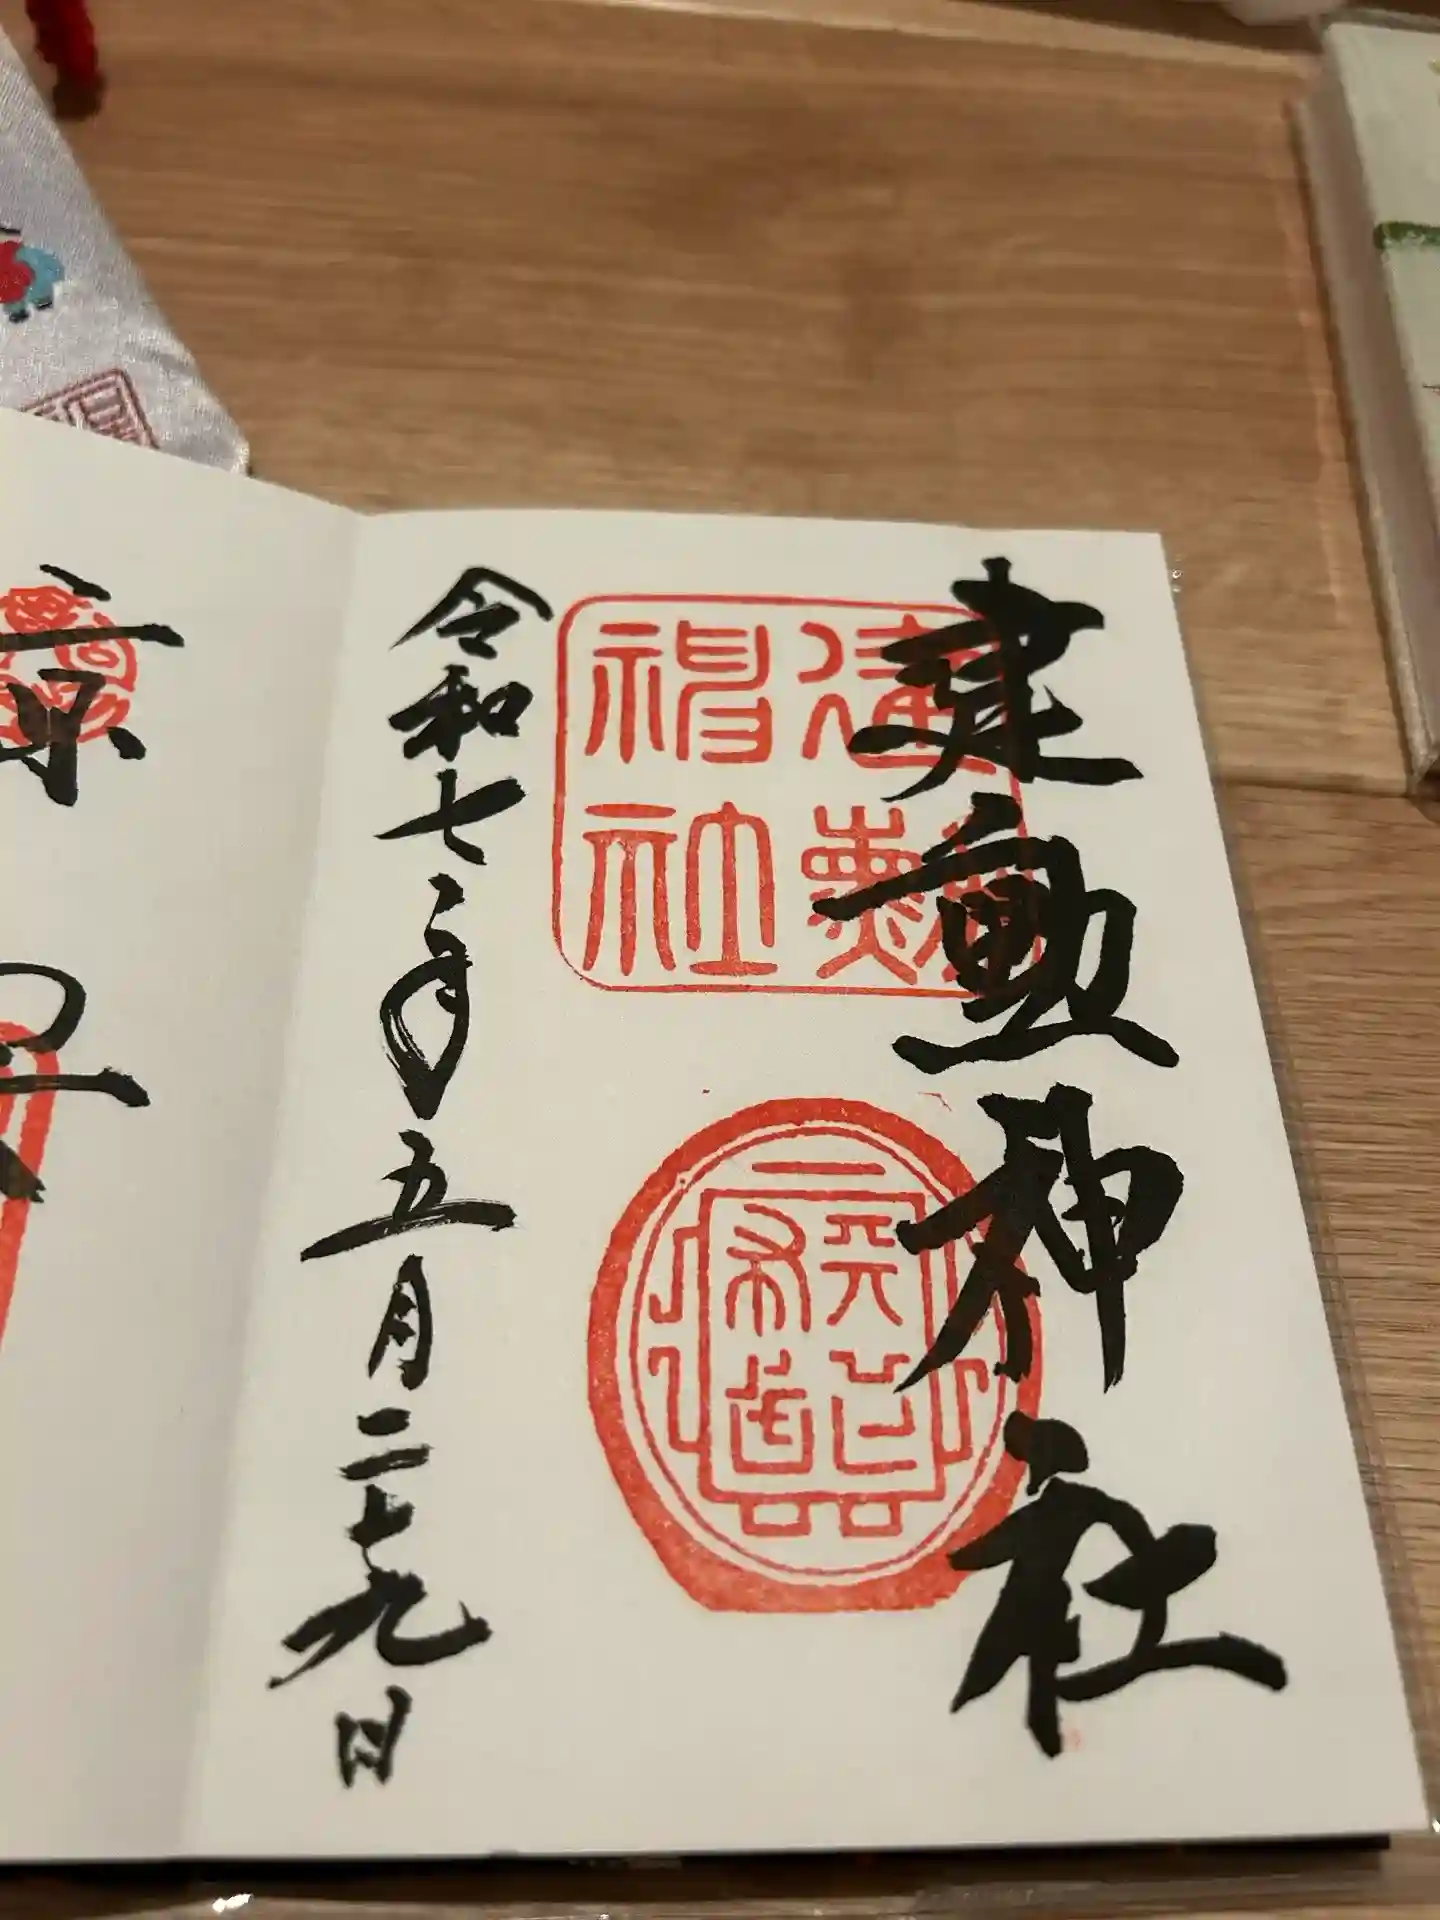 建勲神社
建勲
神社
令和七年五月二十九日
京